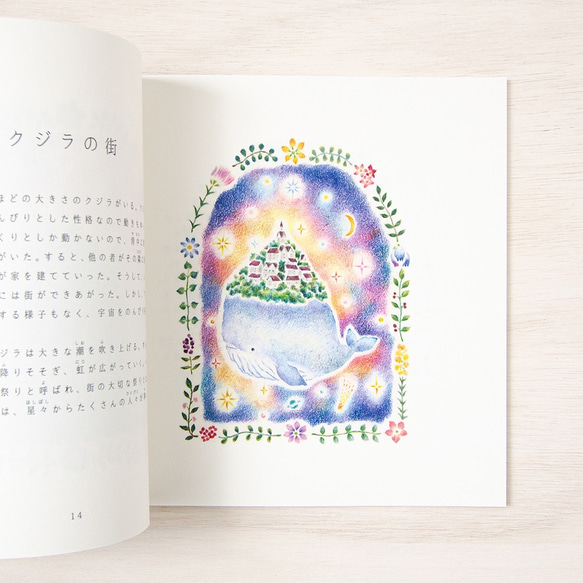 クジラの街
ほどの大きさのクジラがいる。
んびりとした性格なので動き
くりとしか動かないので、背
がいた。すると、他の者がその
が家を建てていった。そうして、
には街ができあがった。しかし、
する様子もなく、宇宙をのんび
ジラは大きな潮を吹き上げる。
降りそそぎ、虹が広がっていく。
祭りと呼ばれ、街の大切な祭り
は、星々からたくさんの人々が
14